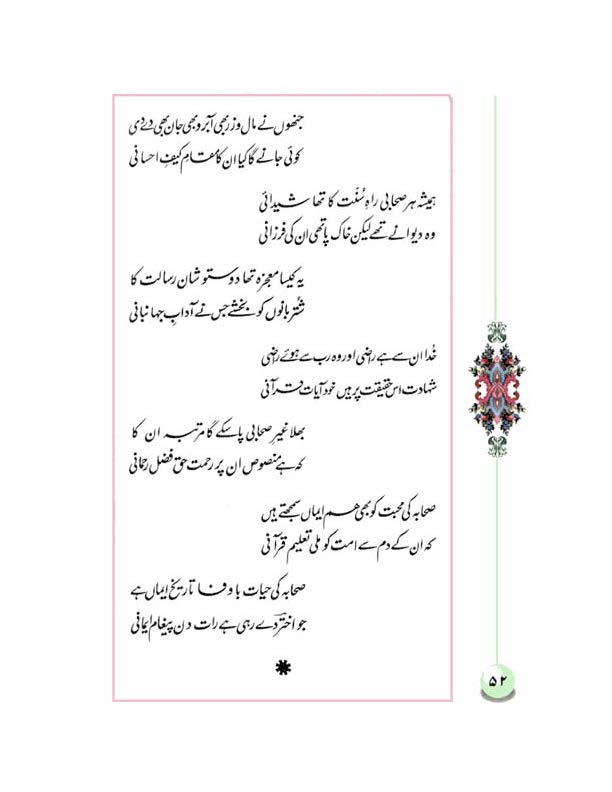 جنھوں نے مال و زر بھی آبرو بھی جان بھی دے دی
کوئی جانے گا کیا ان کا مقامِ کیفِ احسانی
ہمیشہ ہر صحابی راہِ سُنّت کا تھا شیدائی
وہ دیوانے تھے لیکن خاک پا تھی ان کی فرزانی
یہ کیسا معجزہ تھا دوستو شان رسالت کا
شتُربانوں کو بخشے جس نے آدابِ جہانبانی
خُدا ان سے ہے راضی اور وہ رب سے ہوئے راضی
شہادت اس حقیقت پر ہیں خود آیات قرآنی
بھلا غیرِ صحابی پا سکے گا مرتبہ ان کا
کہ ہے منصوص ان پر رحمت حق فضل رحمانی
صحابہ کی محبت کو بھی ہم ایماں سمجھتے ہیں
کہ ان کے دم سے امت کو ملی تعلیم قرآنی
صحابہ کی حیات باوفا تاریخ ایماں ہے
جو اخترؔ دے رہی ہے رات دن پیغام ایمانی
۵۲